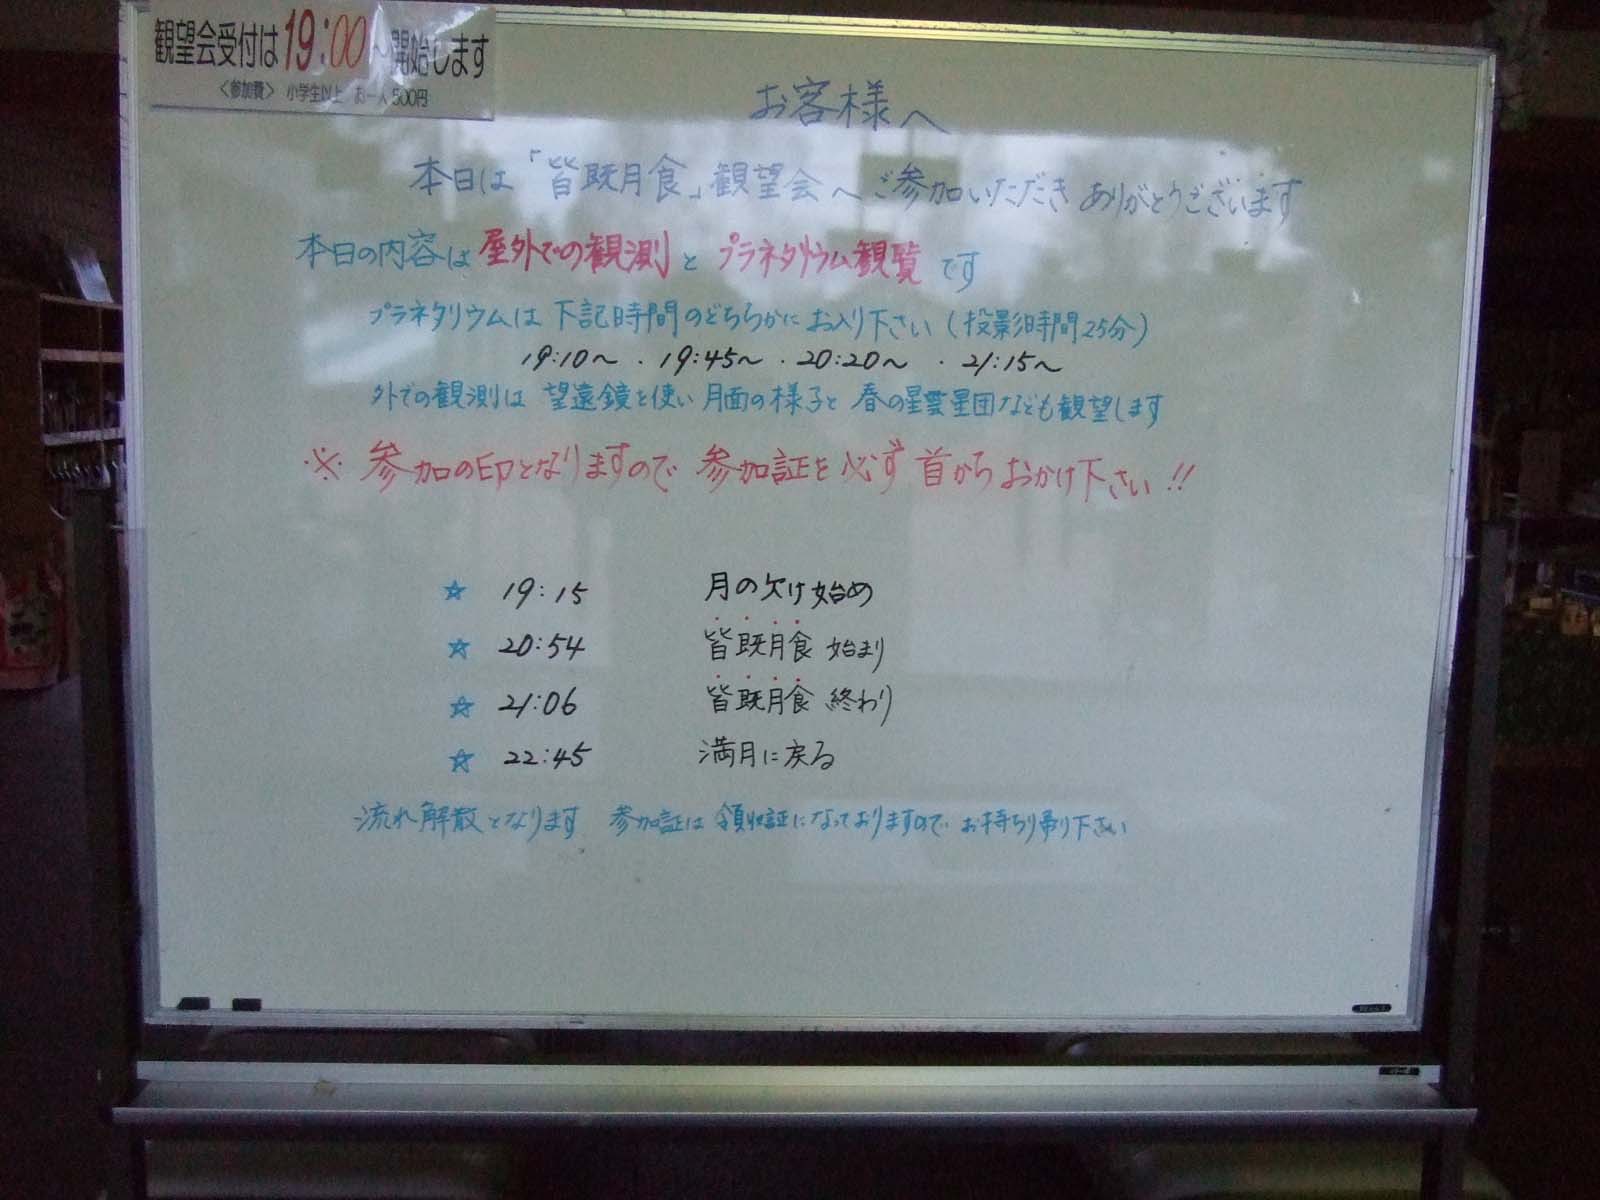 観望会受付は19:00～開始します
＜参加費＞ 小学生以上 お一人500円
お客様へ
本日は「皆既月食」観望会へご参加いただき ありがとうございます
本日の内容は 屋外での観測 と プラネタリウム観覧 です
プラネタリウムは 下記時間のどちらかに お入り下さい (投影時間25分)
19:10～ ・ 19:45～ ・ 20:20～ ・ 21:15～
外での観測は 望遠鏡を使い 月面の様子と 春の星雲星団なども観望します
※ 参加の印となりますので 参加証を必ず 首からおかけ下さい!!
☆ 19:15 月の欠け始め
☆ 20:54 皆既月食 始まり
☆ 21:06 皆既月食 終わり
☆ 22:45 満月に戻る
流れ解散となります 参加証は 領収証になっておりますので お持ち帰り下さい